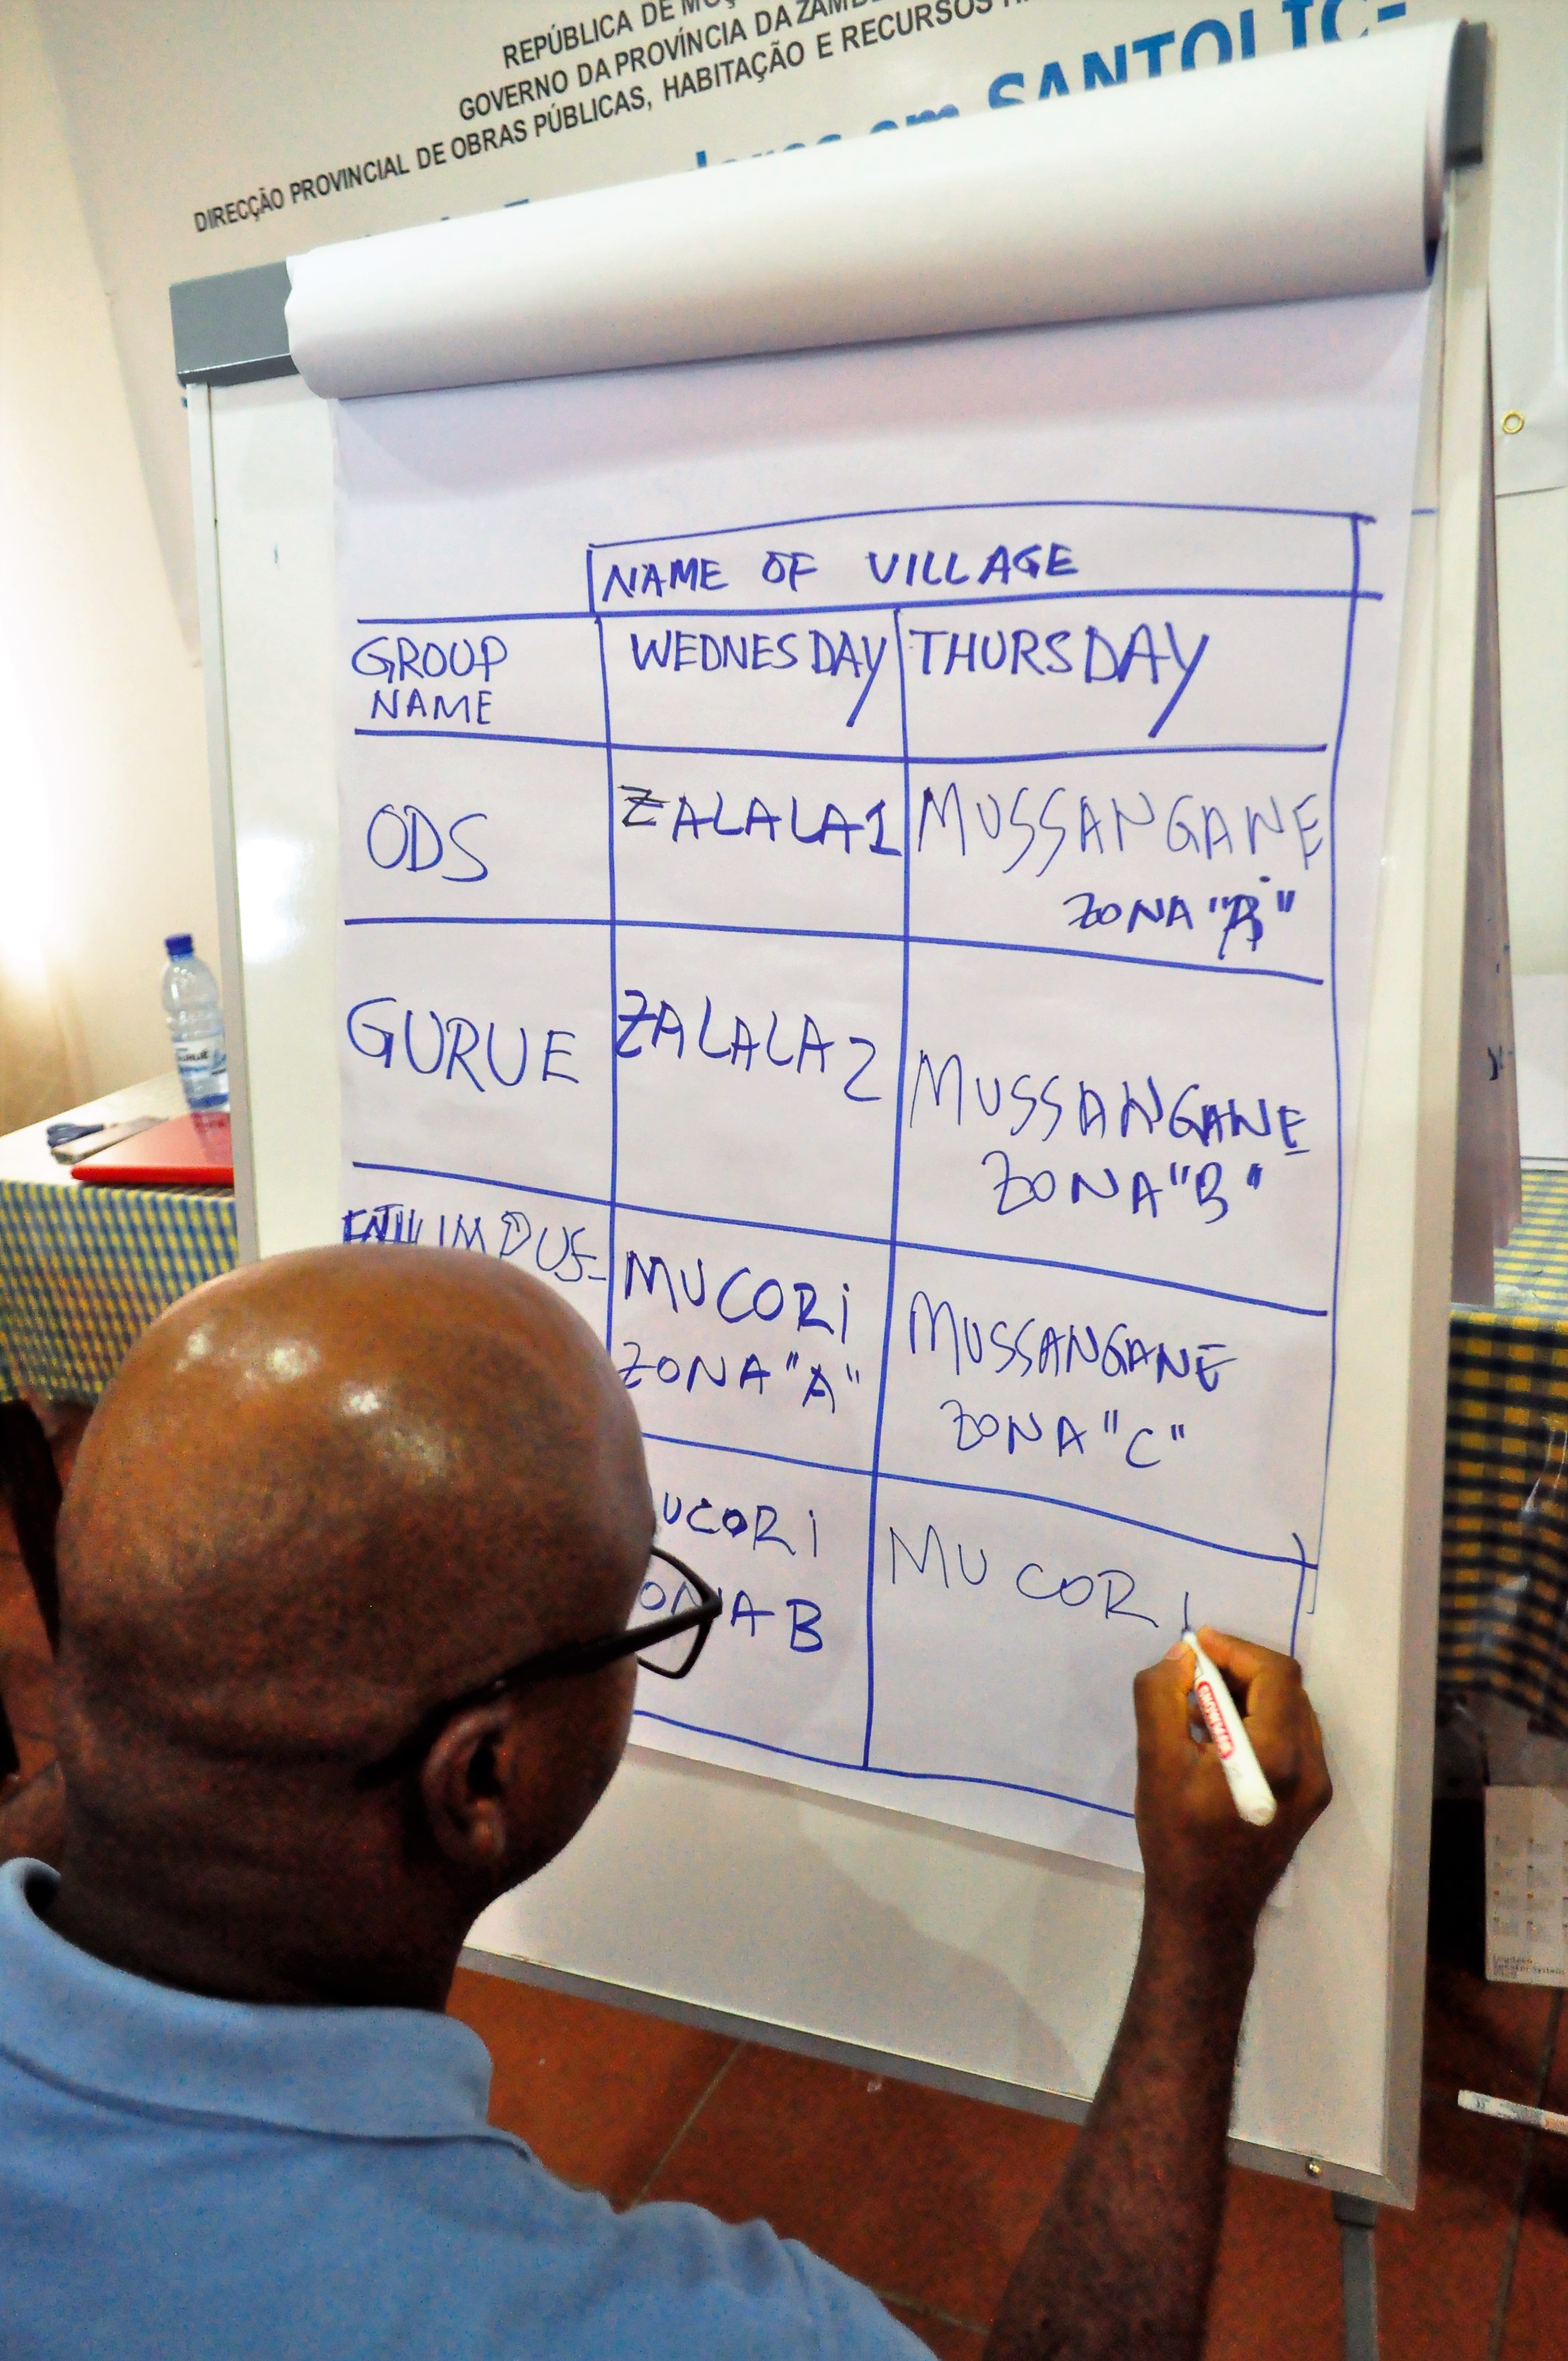 REPÚBLICA DE
GOVERNO DA PROVÍNCIA DA
DIRECÇÃO PROVINCIAL DE OBRAS PÚBLICAS, HABITAÇÃO E RECURSOS
em
NAME OF VILLAGE
GROUP NAME WEDNESDAY THURSDAY
ODS ZALALA1 MUSSANGANE
ZONA "A"
GURUE ZALALA 2 MUSSANGANE
ZONA "B"
MUCORI MUSSANGANE
ZONA "A" ZONA "C"
UCORI MUCORI
B
SHOWMAN